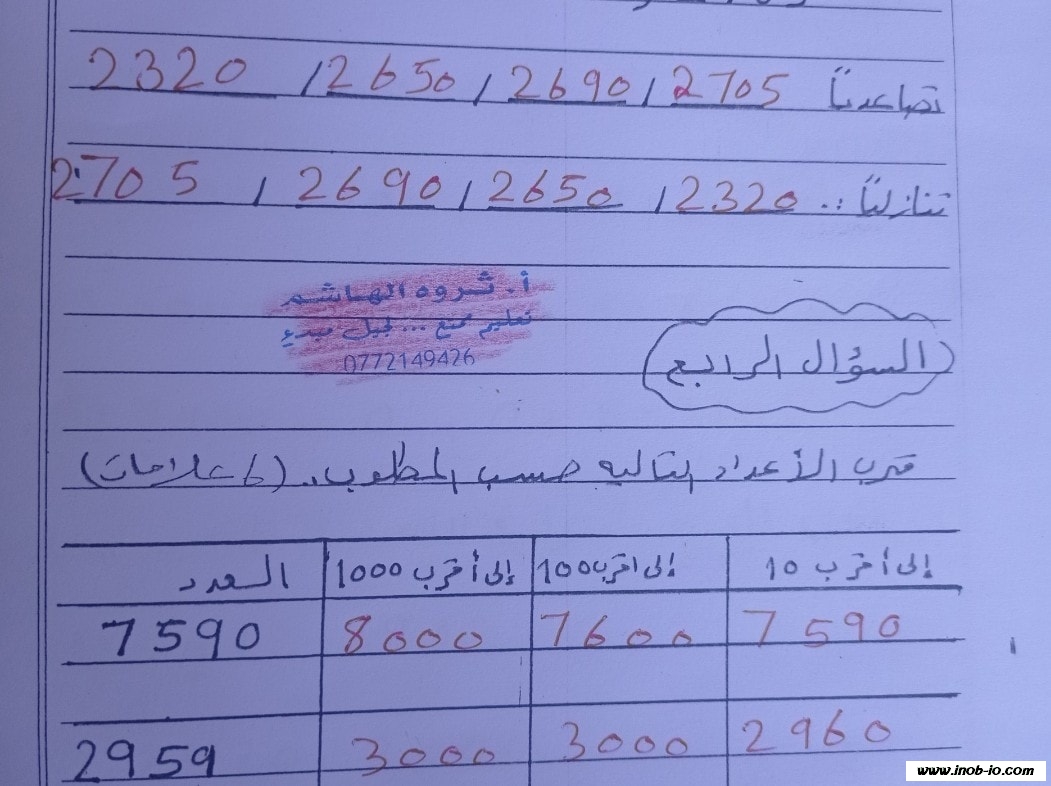 تصاعديًا 2320 / 2650 / 2690 / 2705
تنازليًا :. 2705 / 2690 / 2650 / 2320
أ. ثروه الهاشم
تعليم ممتع ... لجيل مبدع
0772149426
السؤال الرابع
قرب الأعداد التاليه حسب المطلوب. (6 علامات)
العدد إلى أقرب 1000 إلى اقرب 100 إلى أقرب 10
7590 8000 7600 7590
2959 3000 3000 2960
www.inob-io.com